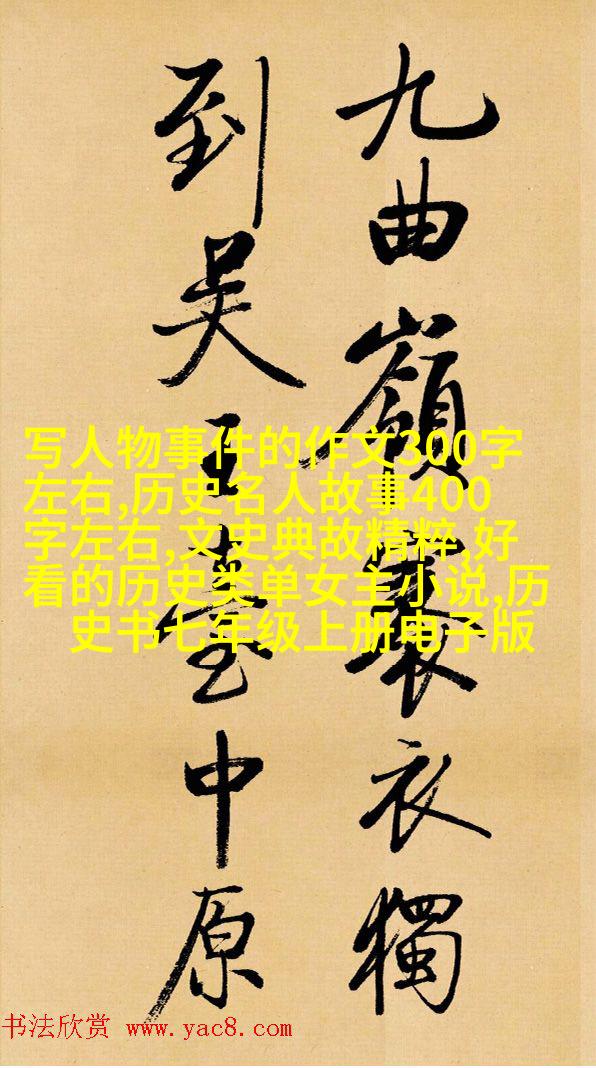 九曲嶺褰衣獨
到吳王臺中原
写人物事件的作文300字
左右,历史名人故事400
字左右,文史典故精粹,好
看的历史类单女主小说,历
史书七年级上册电子版
书法欣赏 www.yac8.com